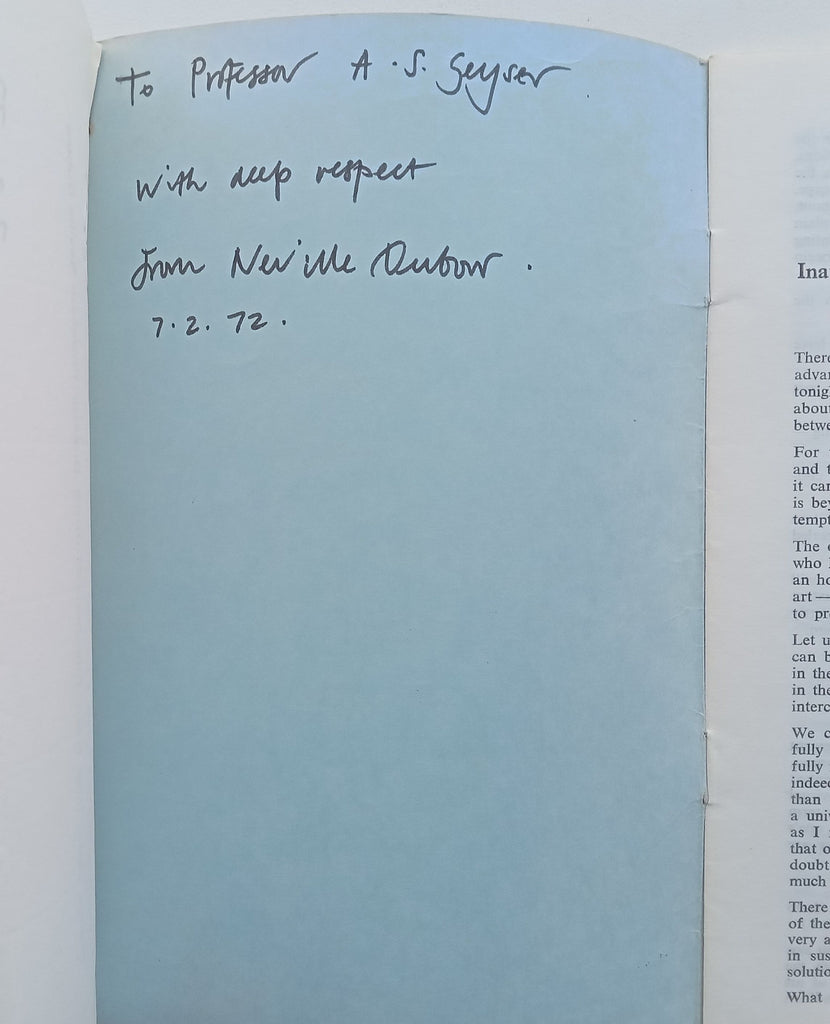 To Professor A.S. Geyser
With deep respect
from Neville Dubow.
7.2.72.
Ina
There
advan
tonig
about
betwe
For
and t
it can
is bey
tempt
The
who
an ho
art—
to pr
Let u
can b
in the
in the
interc
We c
fully
fully
indeed
than
a uni
as I
that o
doubt
much
There
of the
very a
in sus
solutio
What